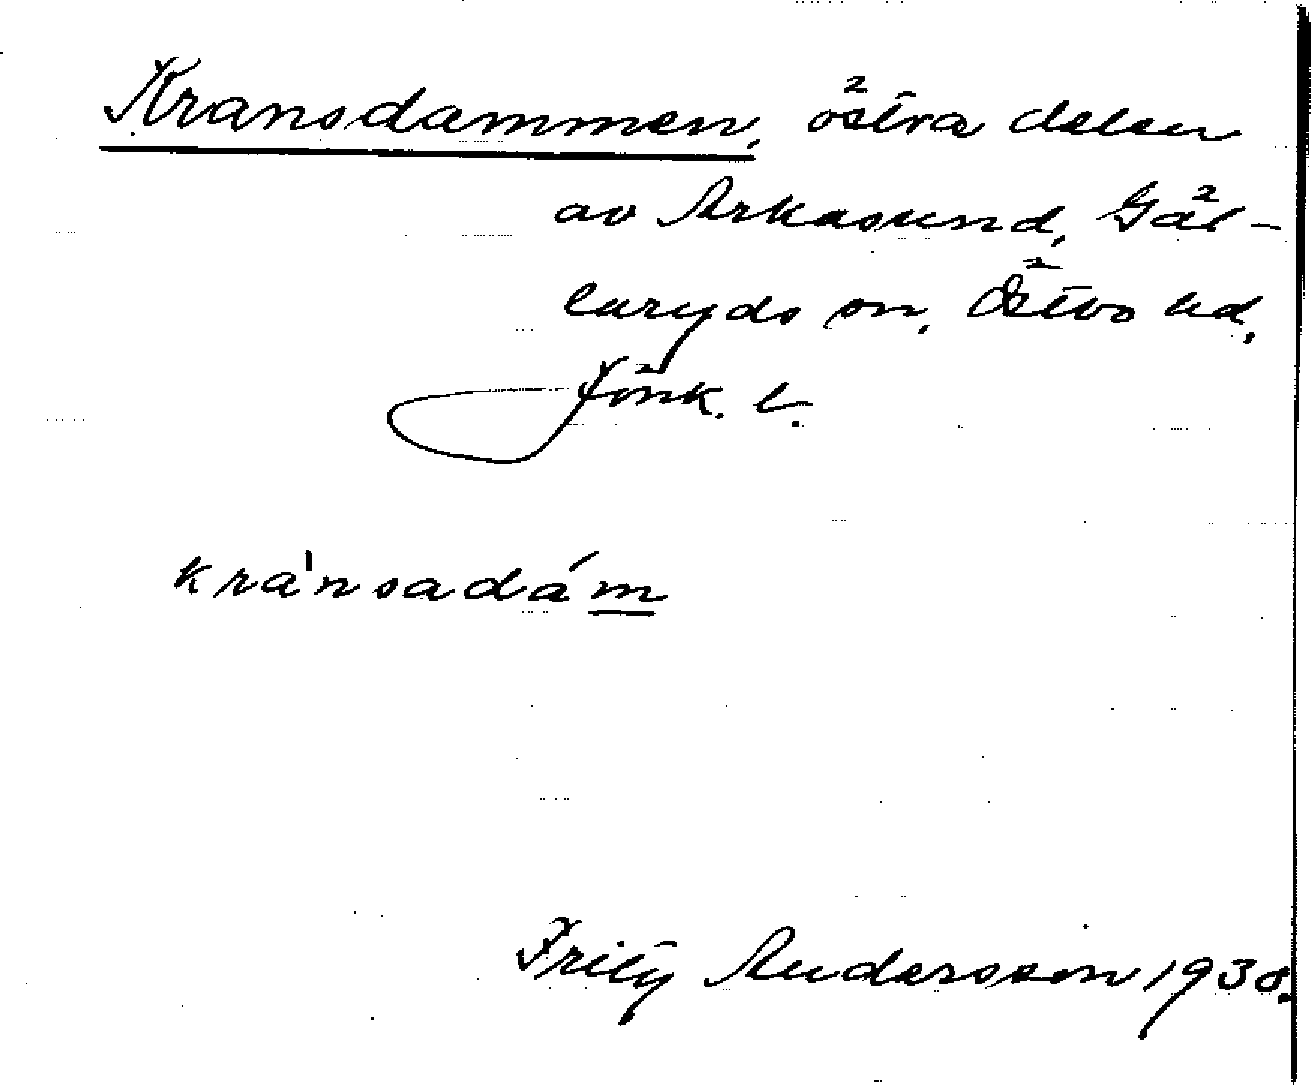 Kransdammen, östra delen
av Arkasund, Gäl-
laryds sn, Östbo hd,
Jönk. l.
kra'nsadám
Fritz Andersson 1938.